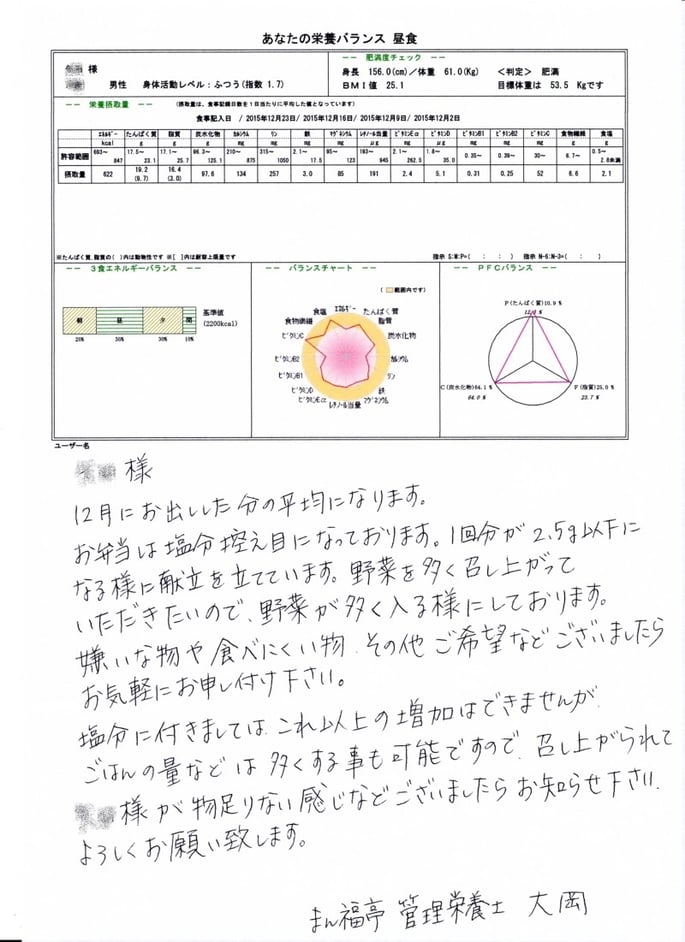 あなたの栄養バランス 昼食
様
男性 身体活動レベル：ふつう(指数 1.7)
-- 肥満度チェック --
身長 156.0(cm)／体重 61.0(Kg) ＜判定＞ 肥満
BMI値 25.1 目標体重は 53.5 Kgです
-- 栄養摂取量 -- (摂取量は、食事記録日数を1日当たりに平均した値となっています)
食事記入日 / 2015年12月23日/ 2015年12月16日/ 2015年12月9日/ 2015年12月2日
エネルギー たんぱく質 脂質 炭水化物 カルシウム リン 鉄 マグネシウム レチノール当量 ビタミンEα ビタミンD ビタミンB1 ビタミンB2 ビタミンC 食物繊維 食塩
kcal g g g mg mg mg mg μg mg μg mg mg mg g g
許容範囲 693～847 17.5～23.1 17.1～25.7 96.3～125.1 210～875 315～1050 2.1～17.5 95～123 193～945 2.1～262.5 1.8～35.0 0.35～ 0.39～ 30～ 6.7～ 0.5～2.8未満
摂取量 622 19.2 (9.7) 16.4 (3.0) 97.6 134 257 3.0 85 191 2.4 5.1 0.31 0.25 52 6.6 2.1
※たんぱく質、脂質の( )内は動物性です ※[ ]内は耐容上限量です 指示 S:M:P=( : : ) 指示 N-6:N-3=( : )
-- 3食エネルギーバランス --
朝 昼 夕 間
20% 30% 30% 10%
基準値
(2200kcal)
-- バランスチャート --
( 範囲内です)
エネルギー
たんぱく質
脂質
炭水化物
カルシウム
リン
鉄
マグネシウム
レチノール当量
ビタミンEα
ビタミンD
ビタミンB1
ビタミンB2
ビタミンC
食物繊維
食塩
-- PFCバランス --
P(たんぱく質)10.9 %
C(炭水化物)64.1 %
64.0 %
F(脂質)25.0 %
23.7 %
ユーザー名
様
12月にお出しした分の平均になります。
お弁当は塩分控え目になっております。1回分が2.5g以下に
なる様に献立を立てています。野菜を多く召し上がって
いただきたいので、野菜が多く入る様にしております。
嫌いな物や食べにくい物、その他ご希望などございましたら
お気軽にお申し付け下さい。
塩分に付きましては、これ以上の増加はできませんが、
ごはんの量などは多くする事も可能ですので、召し上がられて
様が物足りない感じなどございましたらお知らせ下さい。
よろしくお願い致します。
まん福亭 管理栄養士 大岡